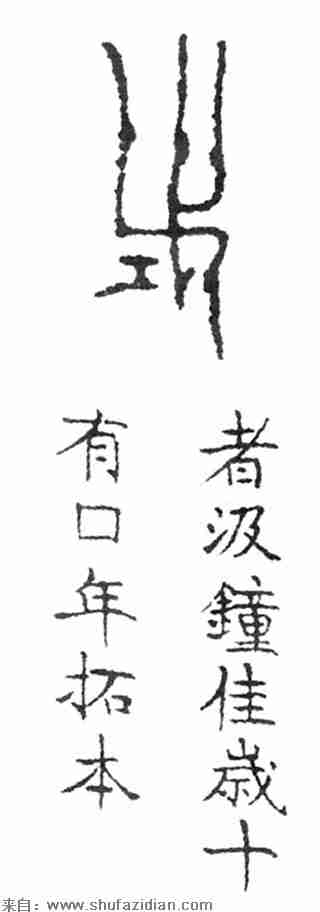 者汲鐘佳歳十
有口年拓本
来自：www.shufazidian.com